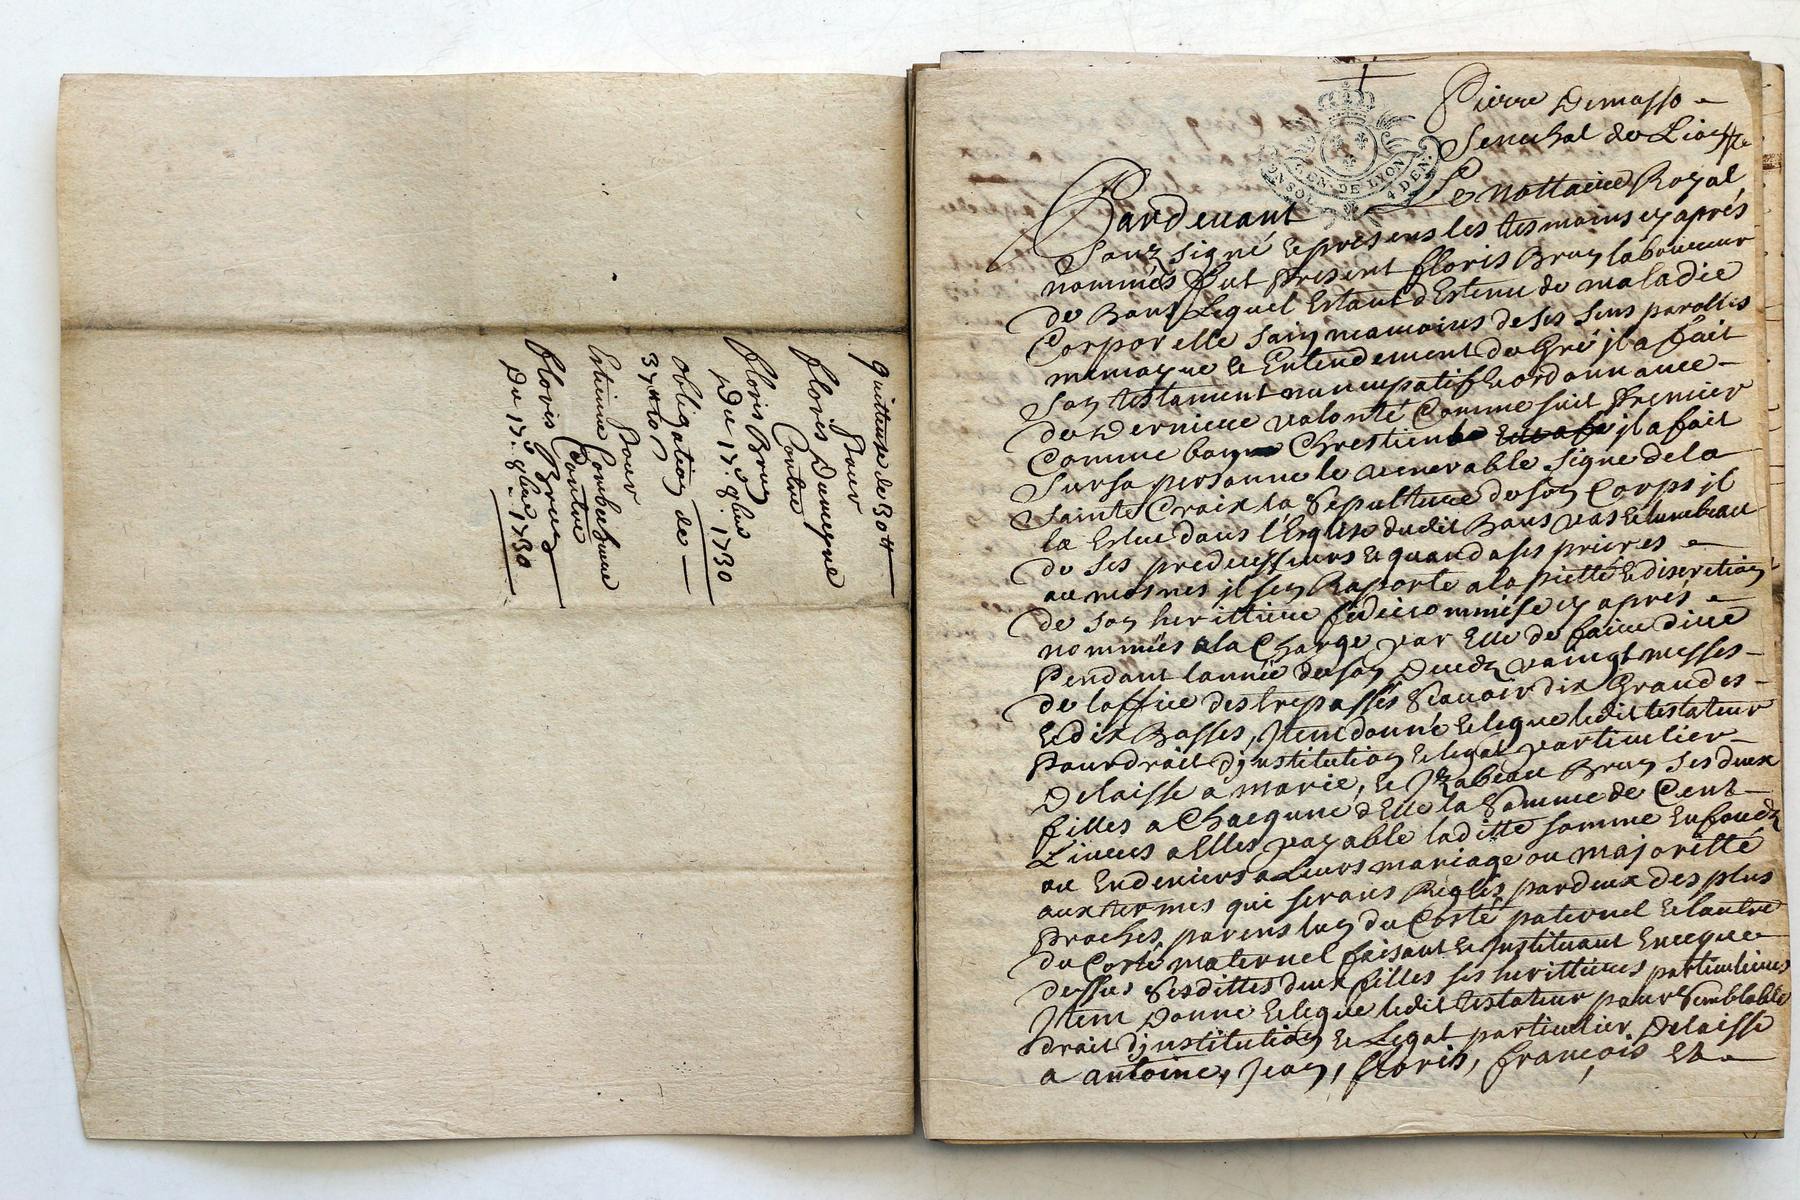 quittance de 30 tt
Pour
floris Dumeyne
Contre
floris Brun
Du 17e 9bre 1730
obligation de
37 tt 10 s
Pour
Estienne
Contre
floris Brun
Du 17e 9bre 1730
Pierre Demasso
Senechal de Lion
GEN. DE LYON
4 DEN.
Pardevant Le nottaire Royal
Souz signé & presens les tesmoins cy après
nommés fut Present floris Brun laboureur
de Bans Lequel Estant destenu de maladie
Corporelle sain neamoins de ses sens parolles
memoyre & Entendement de Gré il a fait
son testament nuncupatif & ordonnance
de Derniere volonté Comme suit Premier
Comme bon Chrestien il a fait
sur sa personne le venerable signe de la
Sainte Croix la Sepulture de son Corps il
la Eslue dans l'Esglise dudit Bans vas & tumbeau
de ses predecesseurs & quand a ses prieres
aumosnes il sen Raporte a la pietté & discretion
de son herittiere fideicommise cy après
nommés a la Charge par Elle de faire dire
Pendant lannée de son Decedz vaingt messes
de loffice des trepassés Scavoir dix Grandes
& dix Basses, Item donne & legue ledit testateur
Pour droit dinstitution & legat particulier
Delaisse a marie, & Izabeau Brun ses deux
filles a Chacqune dElle la Somme de Cent
Livres a Elles payable laditte somme En fondz
ou En deniers a Leurs mariage ou majoritté
aux termes qui serons Réglés par deux des plus
Proches parens lun du Costé paternel & lautre
du Costé maternel faisant & Instituant Enceque
dessus Sesdittes deux filles ses herittieres particulieres
Item Donne & legue ledit testateur pour Semblable
droit dinstitution & Legat particulier Delaisse
a antoine, Jean, floris, françois &